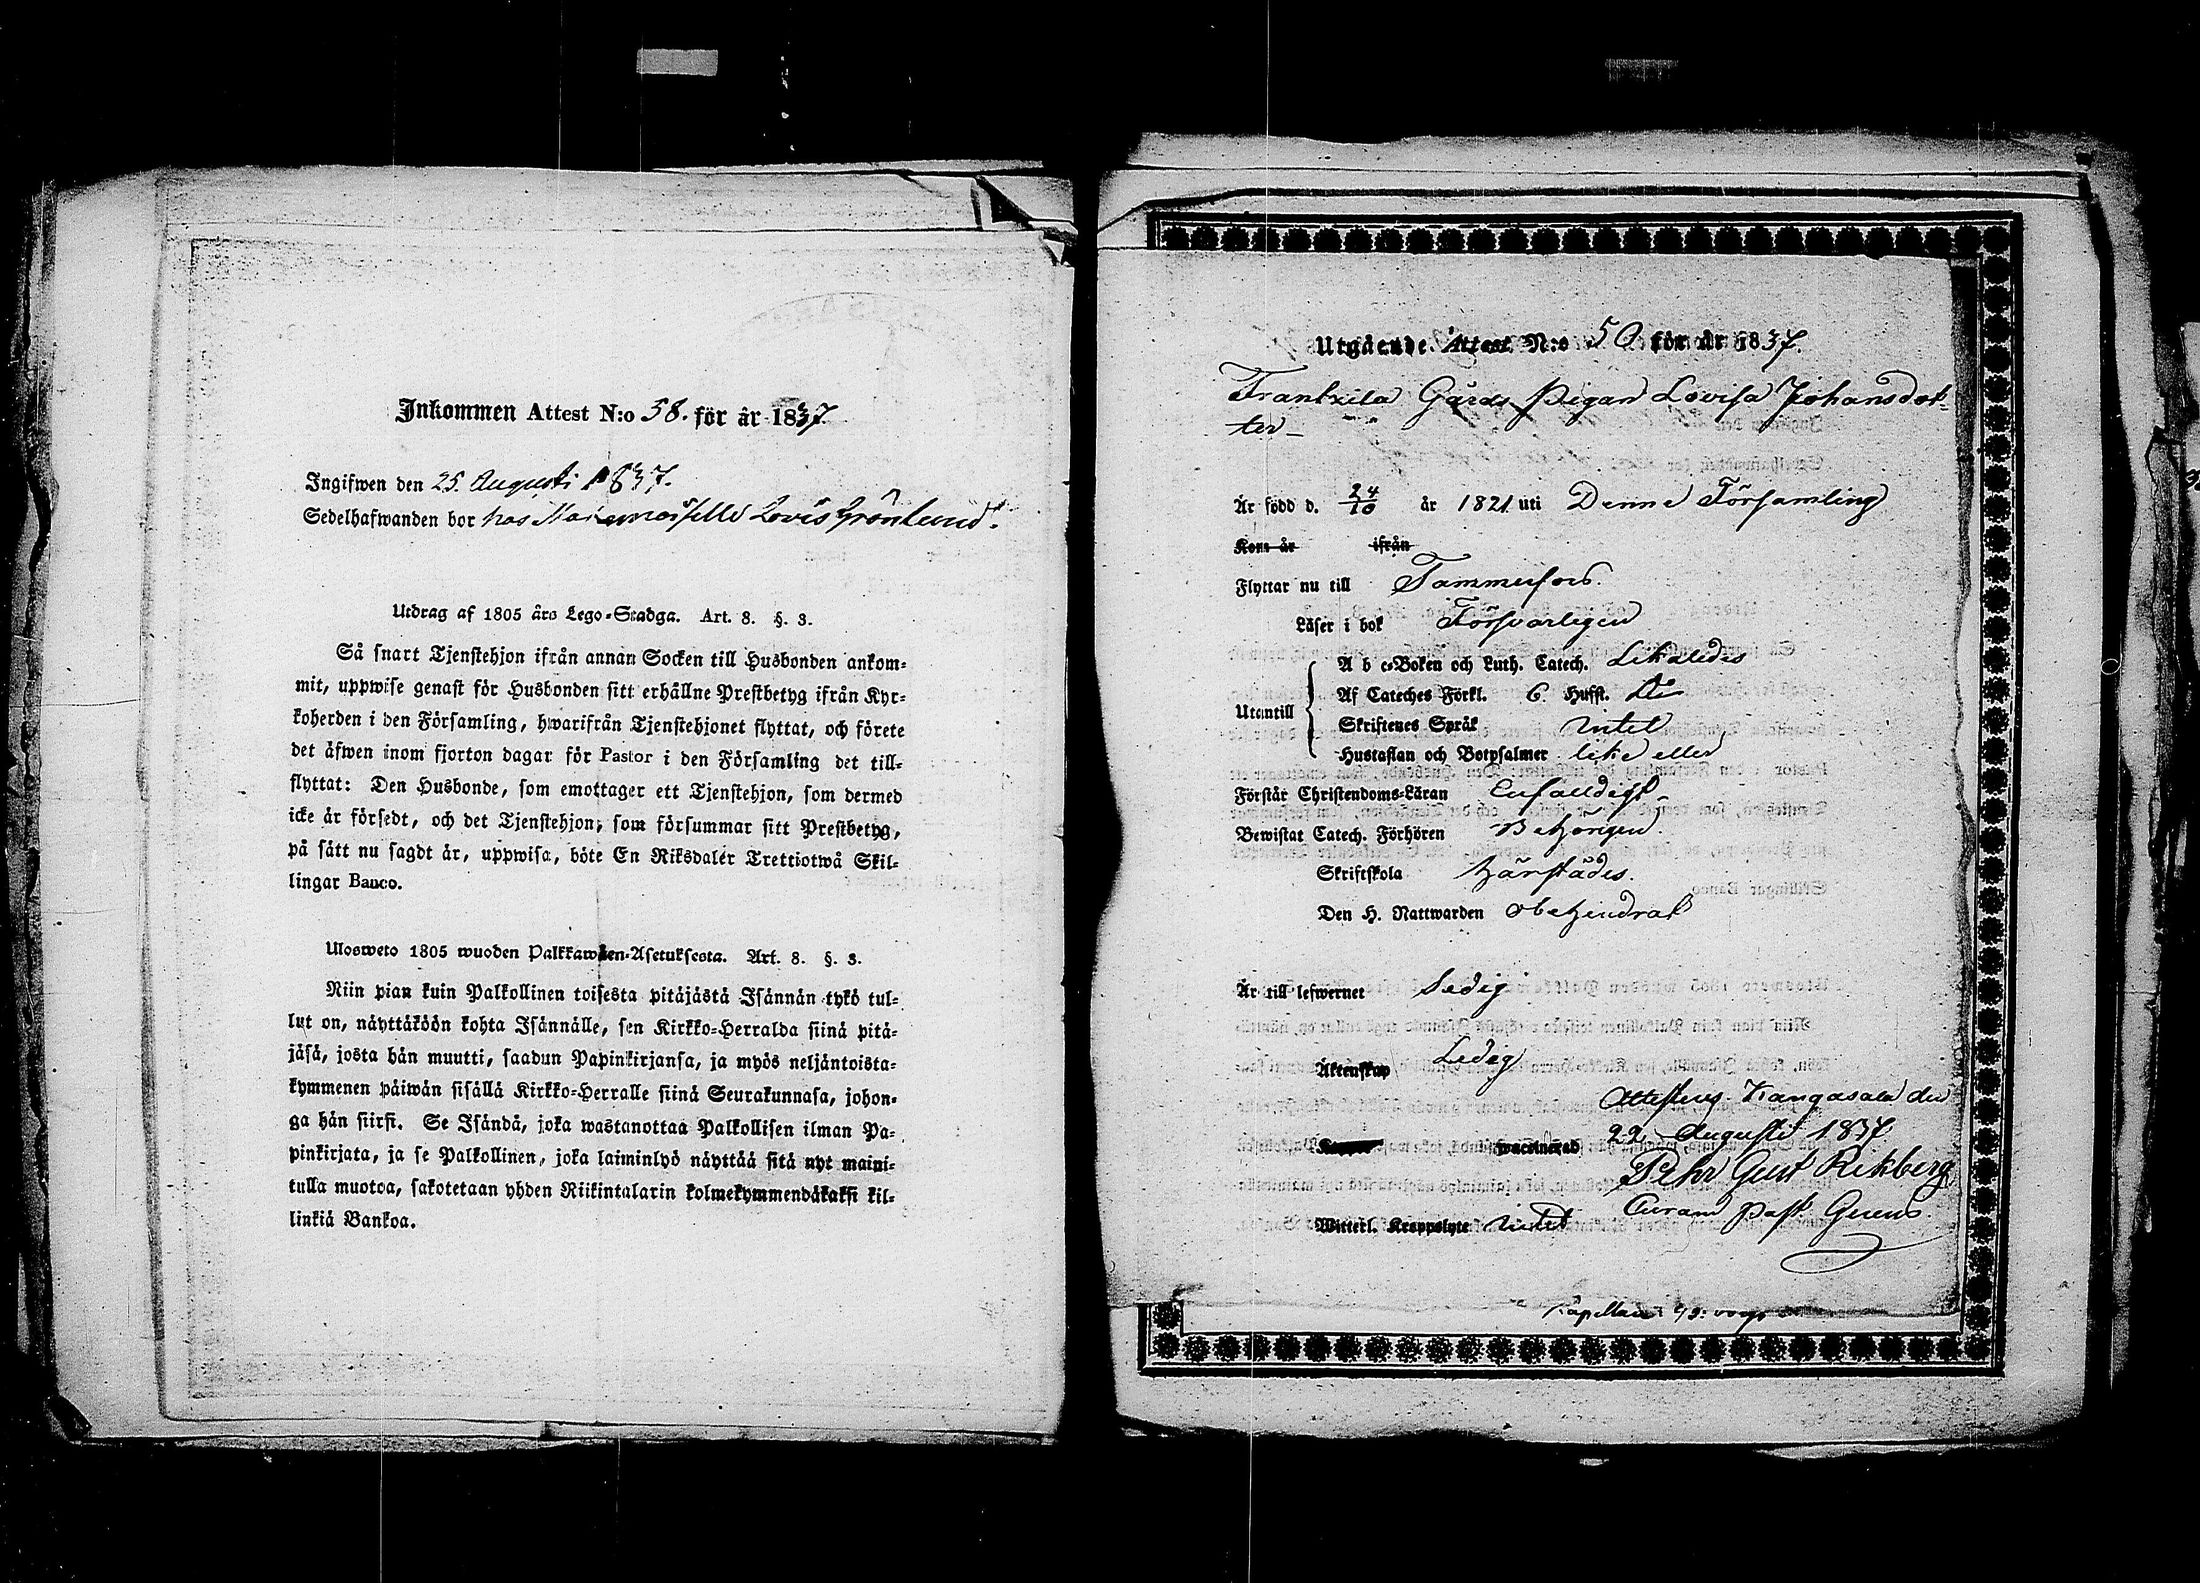 Inkommen Attest N:o 58. för år 1837.
Ingifwen den 25. Augusti 1837.
Sedelhafwanden bor hos Mademoiselle Lovis Grönlund.
Utdrag af 1805 års Lego-Stadga. Art. 8. §. 3.
Så snart Tjenstehjon ifrån annan Socken till Husbonden ankom-
mit, uppwise genast för Husbonden sitt erhållne Prestbetyg ifrån Kyr-
koherden i den Församling, hwarifrån Tjenstehjonet flyttat, och förete
det äfwen inom fjorton dagar för Pastor i den Församling det till-
flyttat: Den Husbonde, som emottager ett Tjenstehjon, som dermed
icke är försedt, och det Tjenstehjon, som försummar sitt Prestbetyg,
på sätt nu sagdt är, uppwisa, böte En Riksdaler Trettiotwå Skil-
lingar Banco.
Ulosweto 1805 wuoden Palkkawäen-Asetuksesta. Art. 8. §. 3.
Niin pian kuin Palkollinen toisesta pitäjästä Isännän tykö tul-
lut on, näyttäköön kohta Isännälle, sen Kirkko-Herralda siinä pitä-
jäsä, josta hän muutti, saadun Papinkirjansa, ja myös neljäntoista-
kymmenen päiwän sisällä Kirkko-Herralle siinä Seurakunnasa, johon-
ga hän siirsi. Se Isändä, joka wastanottaa Palkollisen ilman Pa-
pinkirjata, ja se Palkollinen, joka laiminlyö näyttää sitä nyt maini-
tulla muotoa, sakotetaan yhden Riikintalarin kolmekymmendäkaksi kil-
linkiä Bankoa.
Utgående Attest N:o 50 för år 1837.
Frantzila Gårds Pigan Lovisa Johansdot-
ter
Är född d. 24/10 år 1821 uti Denne Församling
Kom år ifrån
Flyttar nu till Tammerfors.
Läser i bok Försvarligen
A b c-Boken och Luth. Catech. Likaledes
Utantill Af Cateches Förkl. 6 Hufst. Do
Skriftenes Språk intet
Hustaflan och Botpsalmer icke eller
Förstår Christendoms-Läran Enfaldigt
Bewistat Catech. Förhören Behörigen.
Skriftskola härstädes.
Den H. Nattwarden obehindrat
Är till lefwernet Sedig
Äktenskap Ledig
Attesteras Kangasala den
22 Augusti 1837
wacinerad
Pehr Gust Rikberg
Witterl. Kroppslyte intet